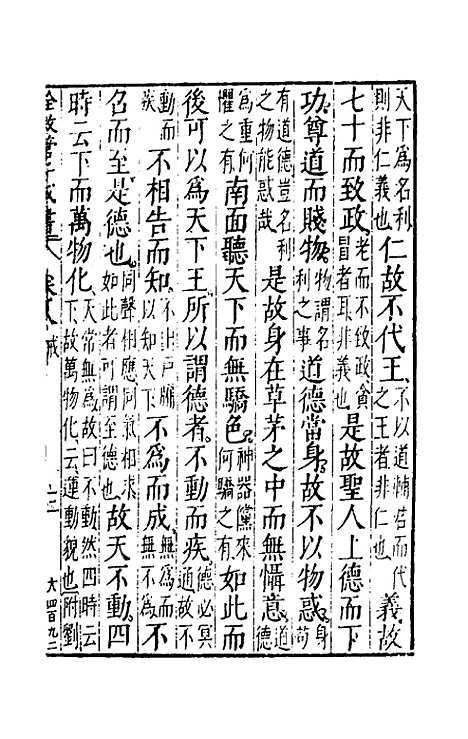 天下為名利則非仁義也仁故不代王不以道輔君而代之王者非仁也義故
七十而致政老而不致政貪冒者耳非義也是故聖人上德而下
功尊道而賤物物謂名利之事道德當身故不以物惑身苟
有道德豈名利之物能惑哉是故身在草茅之中而無懾意道德
為重何懼之有南面聽天下而無驕色神器儻來何驕之有如此而
後可以為天下王所以謂德者不動而疾德必冥通故不
動而疾不相告而知不出戶牖以知天下不為而成無為而無不為不
召而至是德也同聲相應同氣相求如此者可謂至德也故天不動四
時云下而萬物化天常無為故曰不動然四時云下故萬物化云運動貌也附劉
詮敘管子成書 卷八 戒 大四百九二